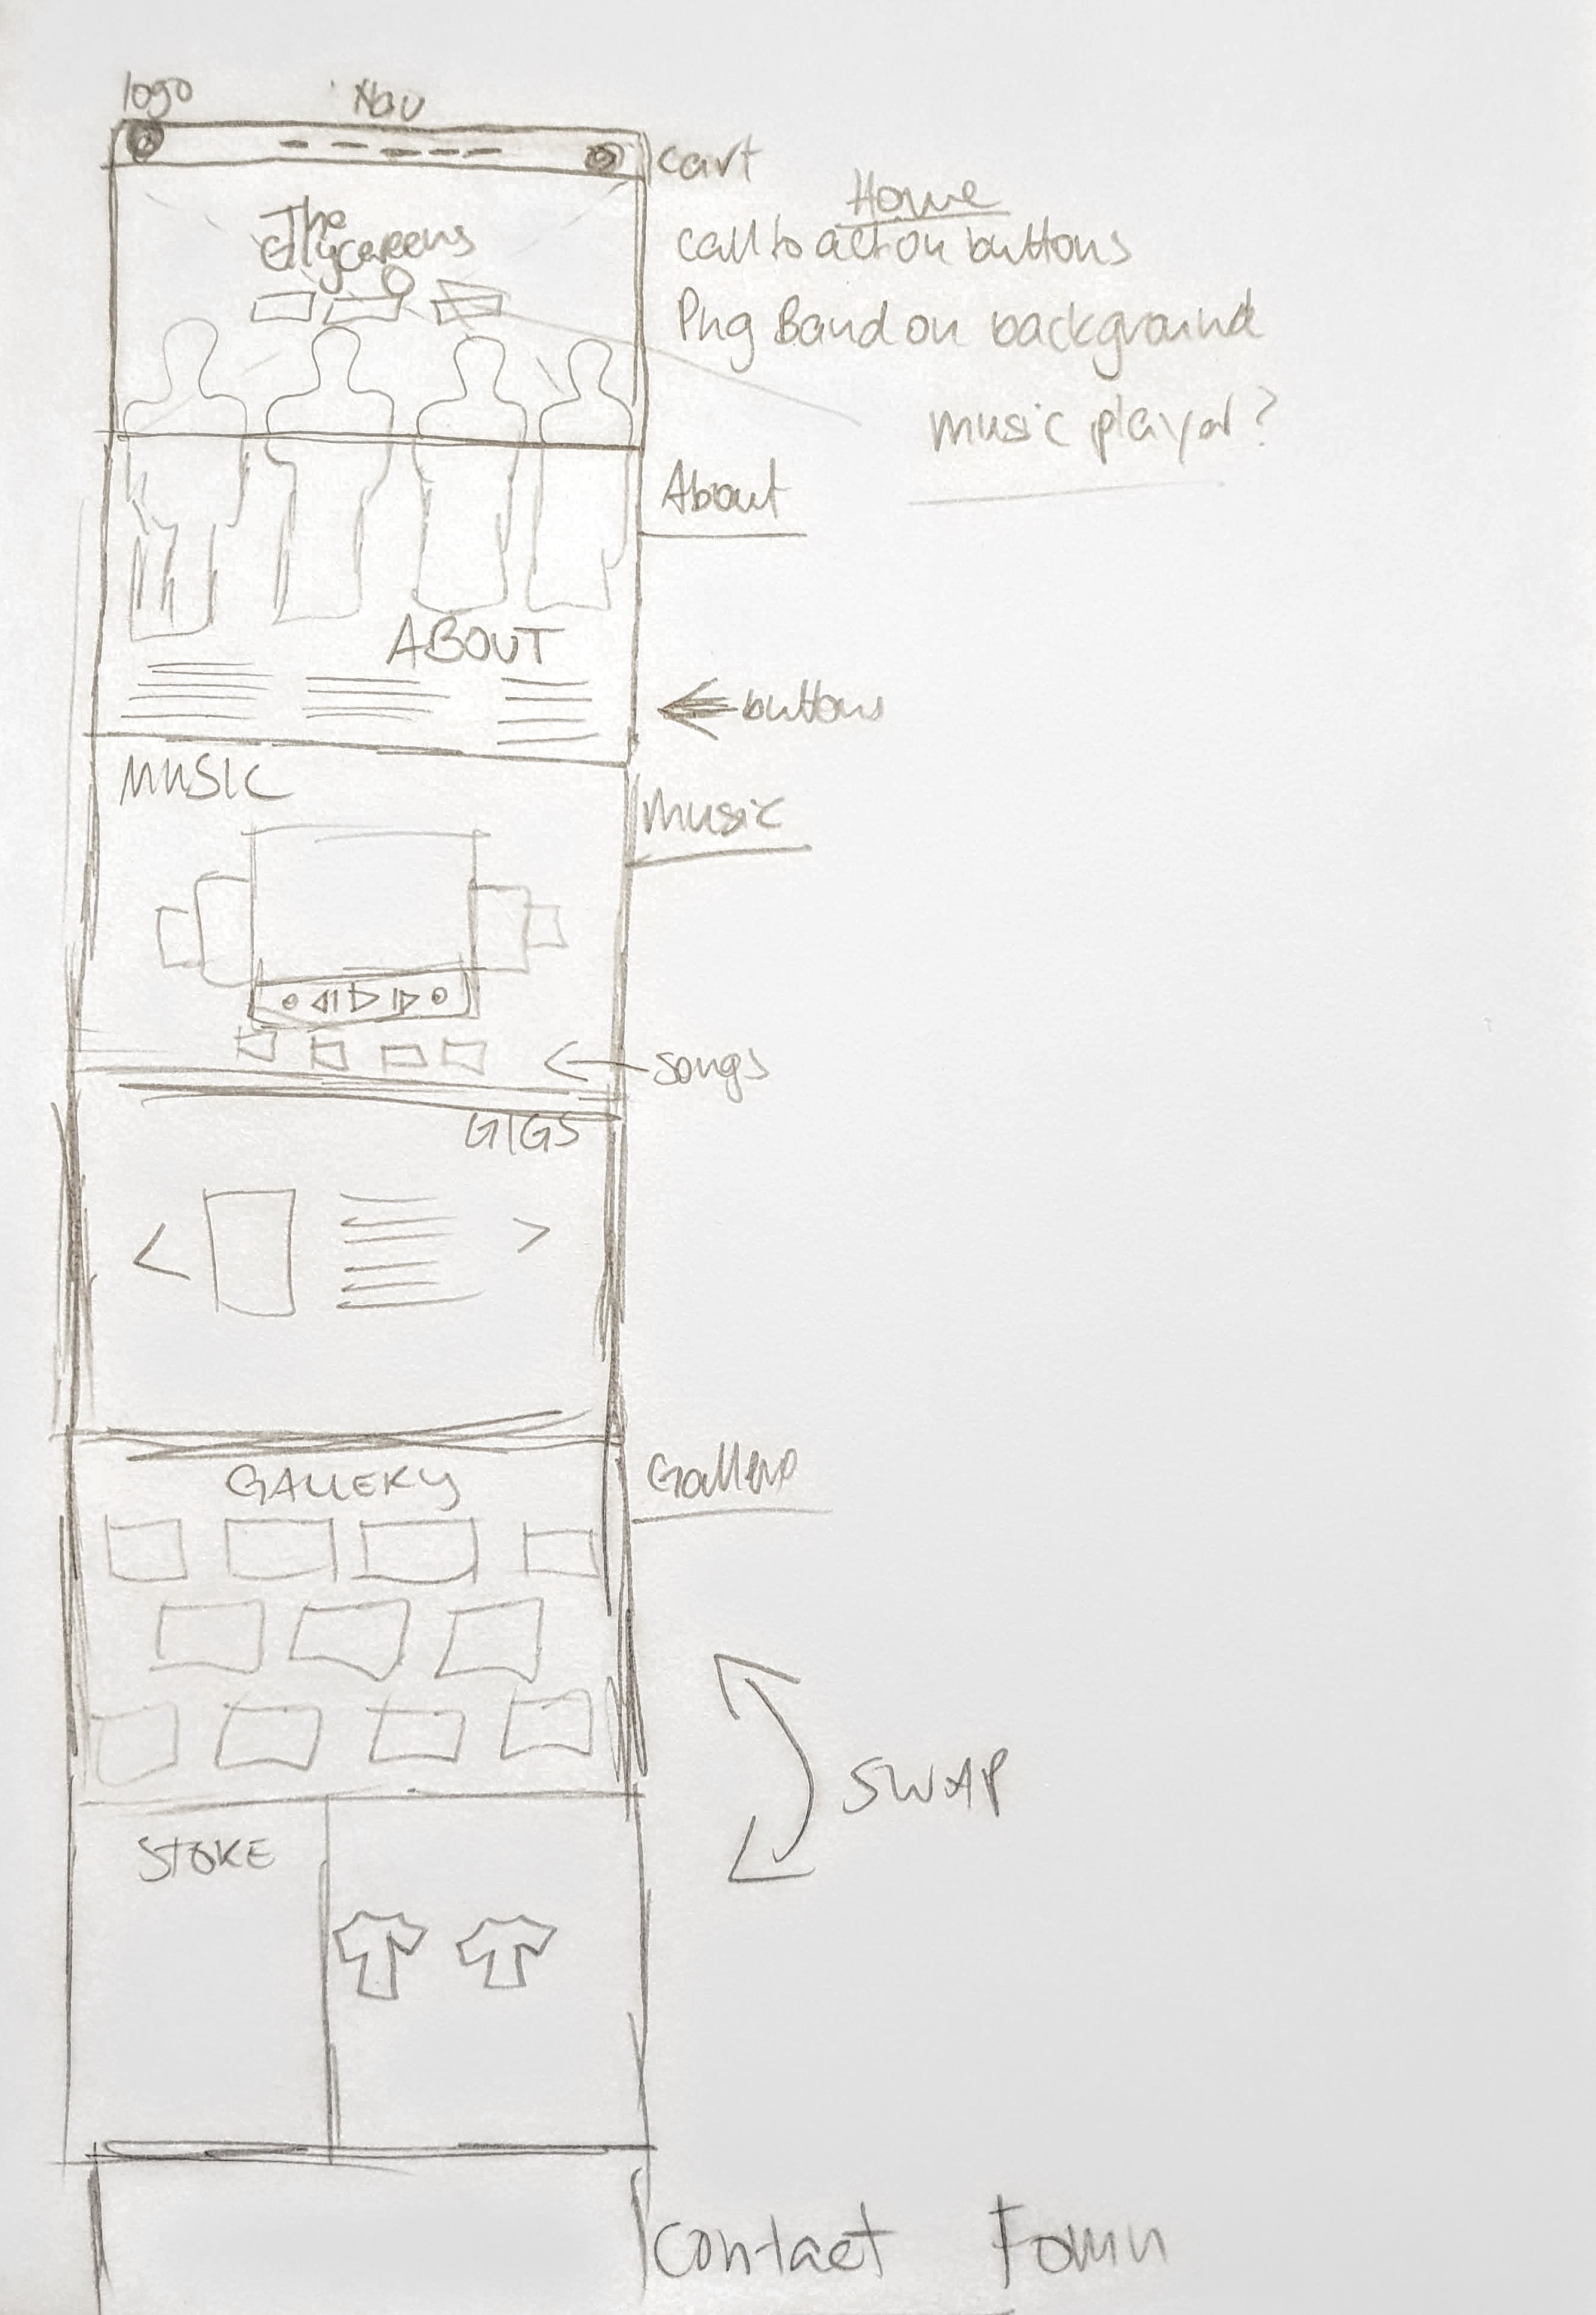 logo
Nav
cart
The
Home
call to action buttons
Png Band on background
music player?
About
ABOUT
buttons
MUSIC
Music
songs
GIGS
GALLERY
Gallery
SWAP
STORE
Contact Form